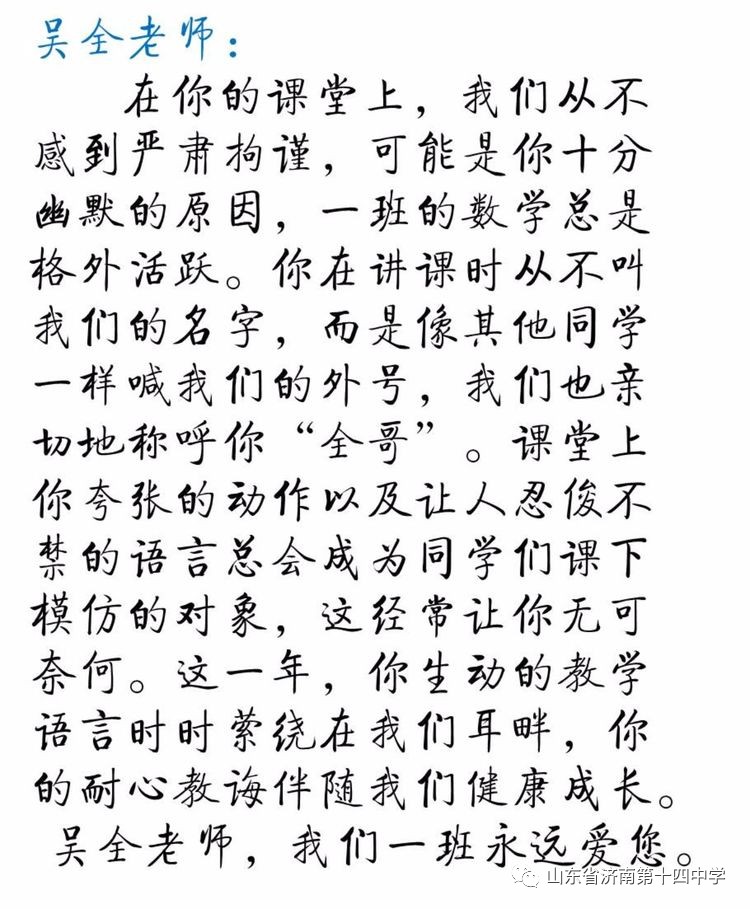 吴全老师：
在你的课堂上，我们从不
感到严肃拘谨，可能是你十分
幽默的原因，一班的数学总是
格外活跃。你在讲课时从不叫
我们的名字，而是像其他同学
一样喊我们的外号，我们也亲
切地称呼你“全哥”。课堂上
你夸张的动作以及让人忍俊不
禁的语言总会成为同学们课下
模仿的对象，这经常让你无可
奈何。这一年，你生动的教学
语言时时萦绕在我们耳畔，你
的耐心教诲伴随我们健康成长。
吴全老师，我们一班永远爱您。
山东省济南第十四中学